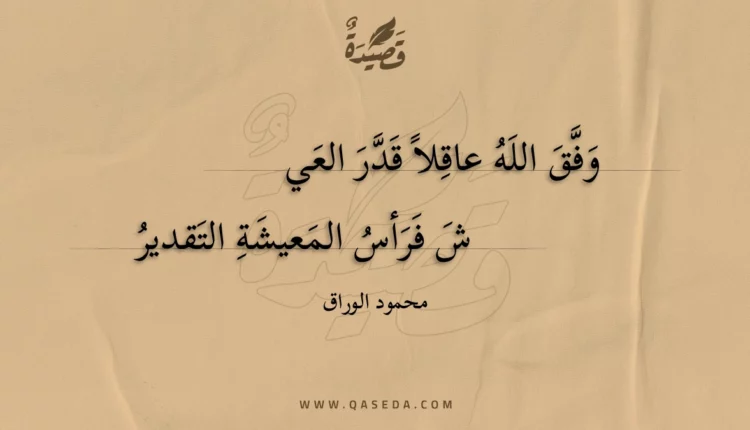 قَصِيدَةٌ
وَفَّقَ اللَهُ عاقِلاً قَدَّرَ العَي
شَ فَرَأسُ المَعيشَةِ التَقديرُ
محمود الوراق
WWW.QASEDA.COM